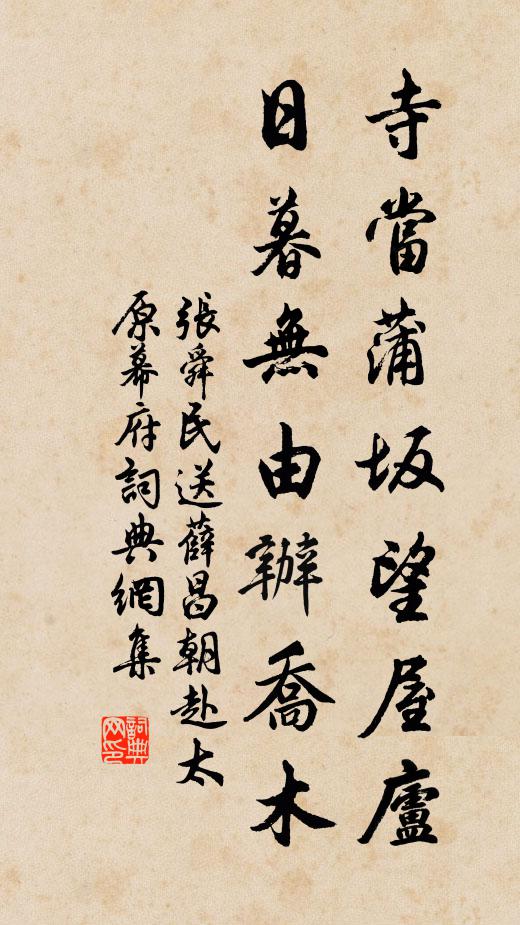 寺當蒲坂望屋廬
日暮無由辦喬木
張舜民送薛昌朝赴太
原幕府詞典網集
詞典网印